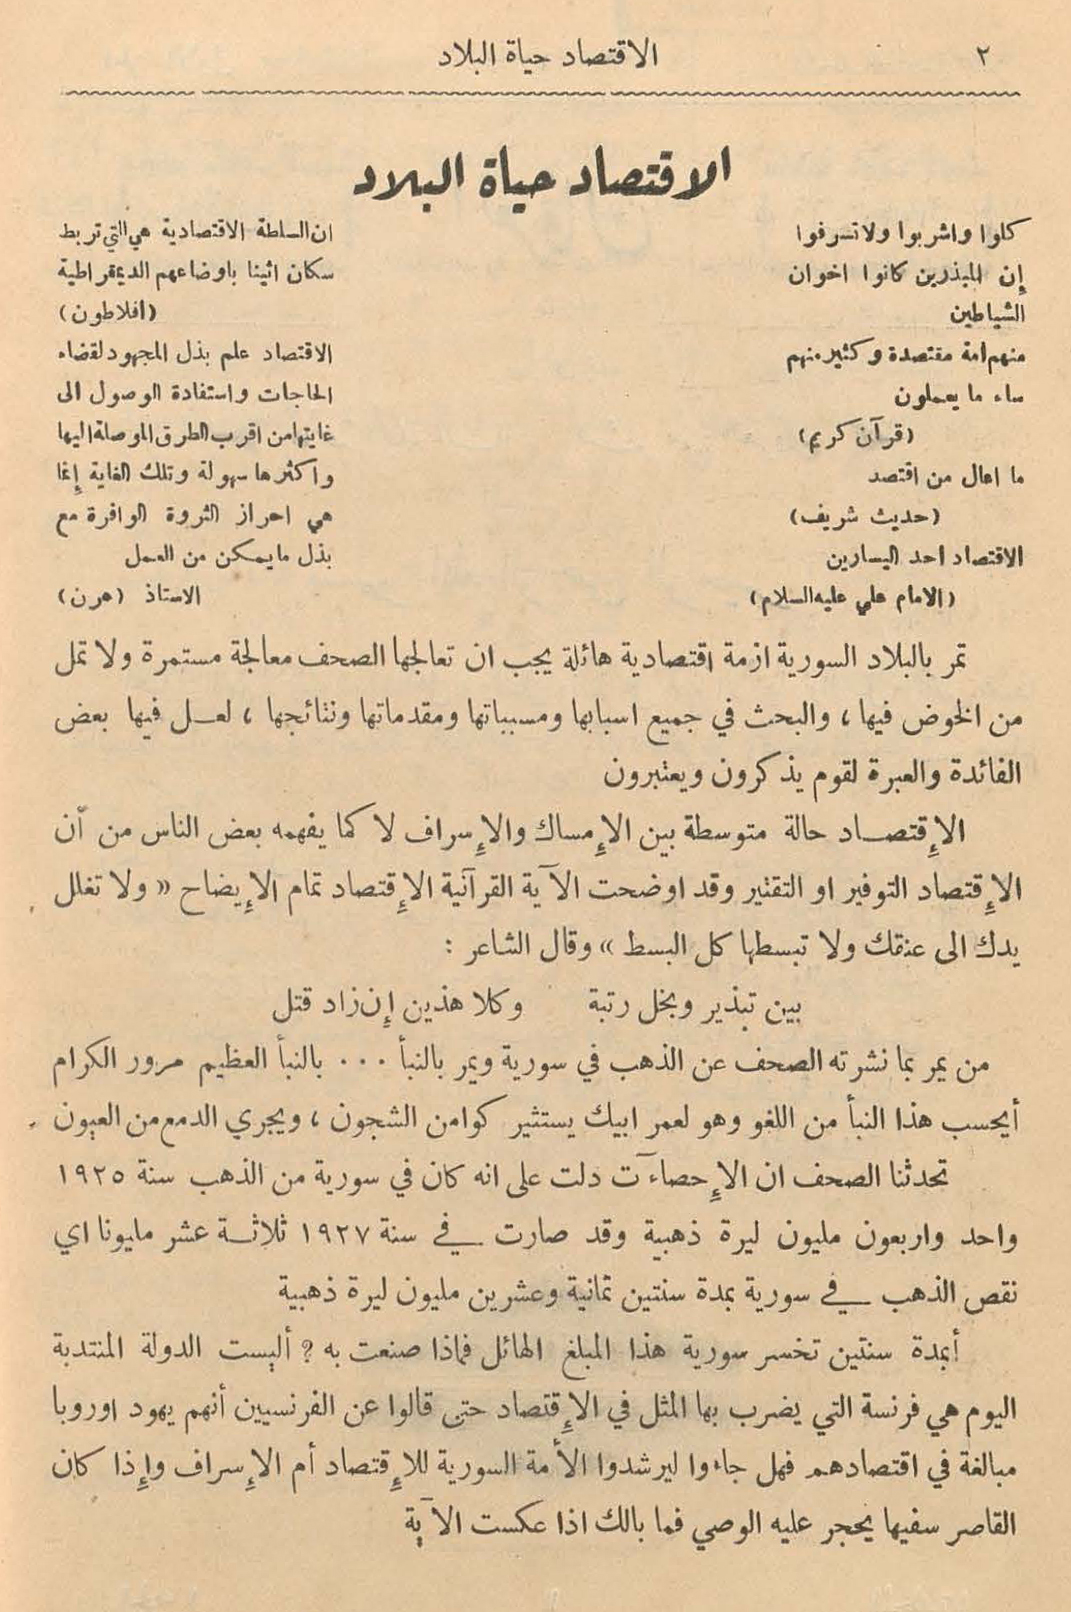 ٢
الاقتصاد حياة البلاد
الاقتصاد حياة البلاد
كلوا واشربوا ولا تسرفوا
إن المبذرين كانوا اخوان
الشياطين
منهم امة مقتصدة وكثير منهم
ساء ما يعملون
(قرآن كريم)
ما اعال من اقتصد
(حديث شريف)
الاقتصاد احد اليسارين
(الامام علي عليه السلام)
ان السلطة الاقتصادية هي التي تربط
سكان اثينا باوضاعهم الديمقراطية
(افلاطون)
الاقتصاد علم بذل المجهود لقضاء
الحاجات واستفادة الوصول الى
غايتها من اقرب الطرق الموصلة اليها
واكثرها سهولة وتلك الغاية إنما
هي احراز الثروة الوافرة مع
بذل ما يمكن من العمل
الاستاذ (هرن)
تمر بالبلاد السورية ازمة اقتصادية هائلة يجب ان تعالجها الصحف معالجة مستمرة ولا تمل
من الخوض فيها ، والبحث في جميع اسبابها ومسبباتها ومقدماتها ونتائجها ، لعل فيها بعض
الفائدة والعبرة لقوم يذكرون ويعتبرون
الإقتصاد حالة متوسطة بين الإمساك والإسراف لا كما يفهمه بعض الناس من أن
الإقتصاد التوفير او التقتير وقد اوضحت الآية القرآنية الإقتصاد تمام الإيضاح « ولا تغلل
يدك الى عنقك ولا تبسطها كل البسط » وقال الشاعر :
بين تبذير وبخل رتبة وكلا هذين إن زاد قتل
من يمر بما نشرته الصحف عن الذهب في سورية ويمر بالنبأ ... بالنبأ العظيم مرور الكرام
أيحسب هذا النبأ من اللغو وهو لعمر ابيك يستثير كوامن الشجون ، ويجري الدمع من العيون .
تحدثنا الصحف ان الإحصاءآت دلت على انه كان في سورية من الذهب سنة ١٩٢٥
واحد واربعون مليون ليرة ذهبية وقد صارت في سنة ١٩٢٧ ثلاثة عشر مليونا اي
نقص الذهب في سورية بمدة سنتين ثمانية وعشرين مليون ليرة ذهبية
أبمدة سنتين تخسر سورية هذا المبلغ الهائل فماذا صنعت به ؟ أليست الدولة المنتدبة
اليوم هي فرنسة التي يضرب بها المثل في الإقتصاد حتى قالوا عن الفرنسيين أنهم يهود اوروبا
مبالغة في اقتصادهم فهل جاءوا ليرشدوا الأمة السورية للإقتصاد أم الإسراف وإذا كان
القاصر سفيها يحجر عليه الوصي فما بالك اذا عكست الآية